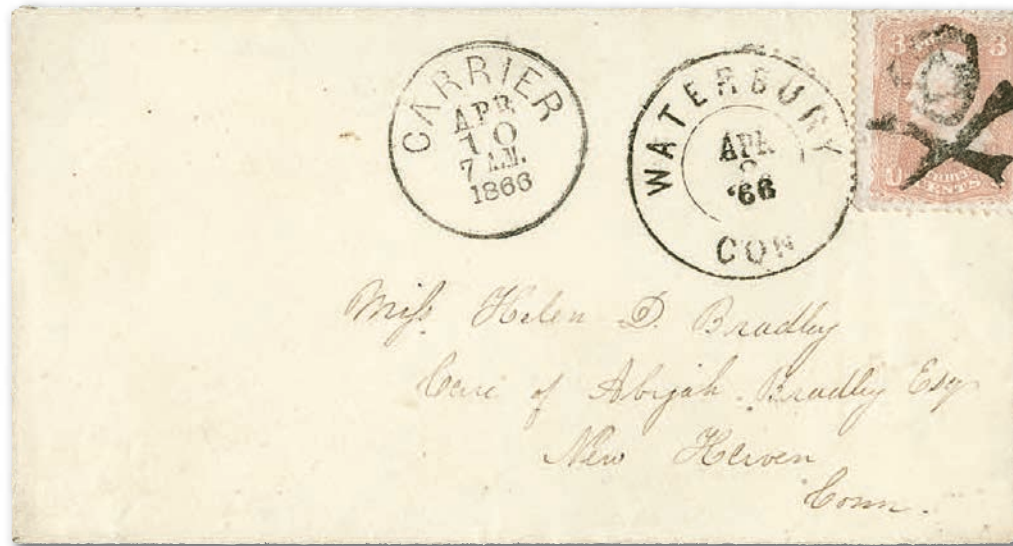 CARRIER
APR
10
7 A.M.
1866
WATERBURY
APR
'66
CON
3 3
CENTS
Miss Helen D. Bradley
Care of Abijah Bradley Esq
New Haven
Conn.